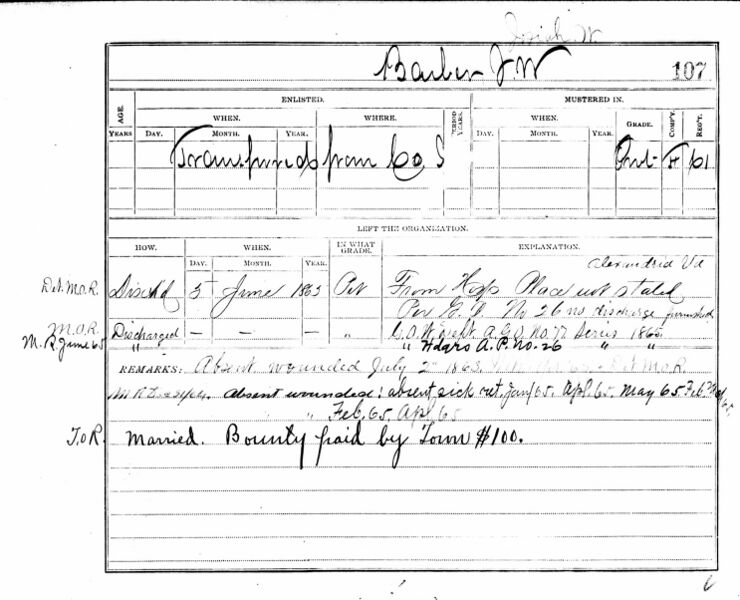 Josiah W.
Barber J. W 107
AGE. ENLISTED. MUSTERED IN.
YEARS DAY. WHEN. MONTH. YEAR. WHERE. PERIOD YEARS. DAY. WHEN. MONTH. YEAR. GRADE. COMP'Y. REG'T.
Transferred from Co. Pvt H 61
LEFT THE ORGANIZATION.
HOW. WHEN. IN WHAT GRADE. EXPLANATION.
DAY. MONTH. YEAR.
Alexandria Va
Det. M.O.R. Disch'd 5 June 1865 Pvt From Hosp Place not stated
Per G.O. No 26 no discharge furnished
M.O.R. Discharged — — — " G.O. W. Dept. A.G.O. No. 77 Series 1865.
M.R. June 65 " " Hdqrs A.P. No. 26 " "
REMARKS: Absent wounded July 2" 1863. Det M.O.R.
absent wounded: absent sick ret. Jan/65. Apl. 65. May 65
" Feb. 65, Apl. 65
T.O.R. Married. Bounty paid by Town $100.